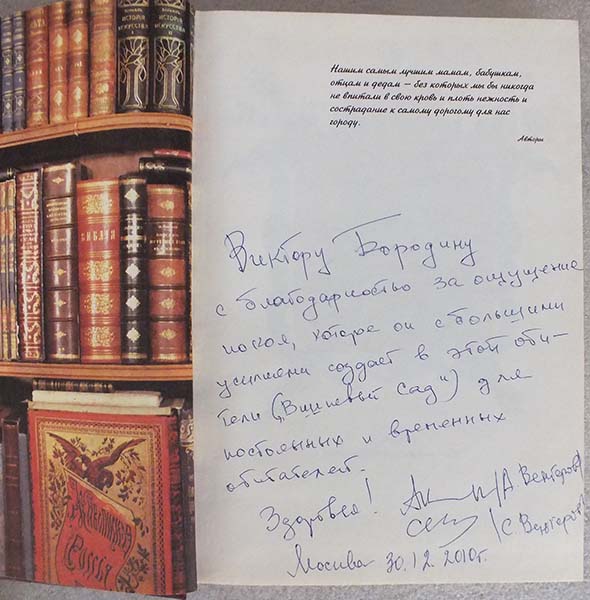 ИСТОРИЯ
ИСКУССТВА
ИСТОРИЯ
ИСКУССТВА
БИБЛИЯ
Живописная
Россия
Нашим самым лучшим мамам, бабушкам,
отцам и дедам — без которых мы бы никогда
не впитали в свою кровь и плоть нежность и
сострадание к самому дорогому для нас
городу.
Авторы
Виктору Бородину
с благодарностью за ощущение
покоя, которое он с большими
усилиями создает в этой оби-
тели („Вишневый сад“) для
постоянных и временных
обитателей.
Здоровья!
/А. Венгеров/
/С. Венгеров/
Москва 30.12.2010г.